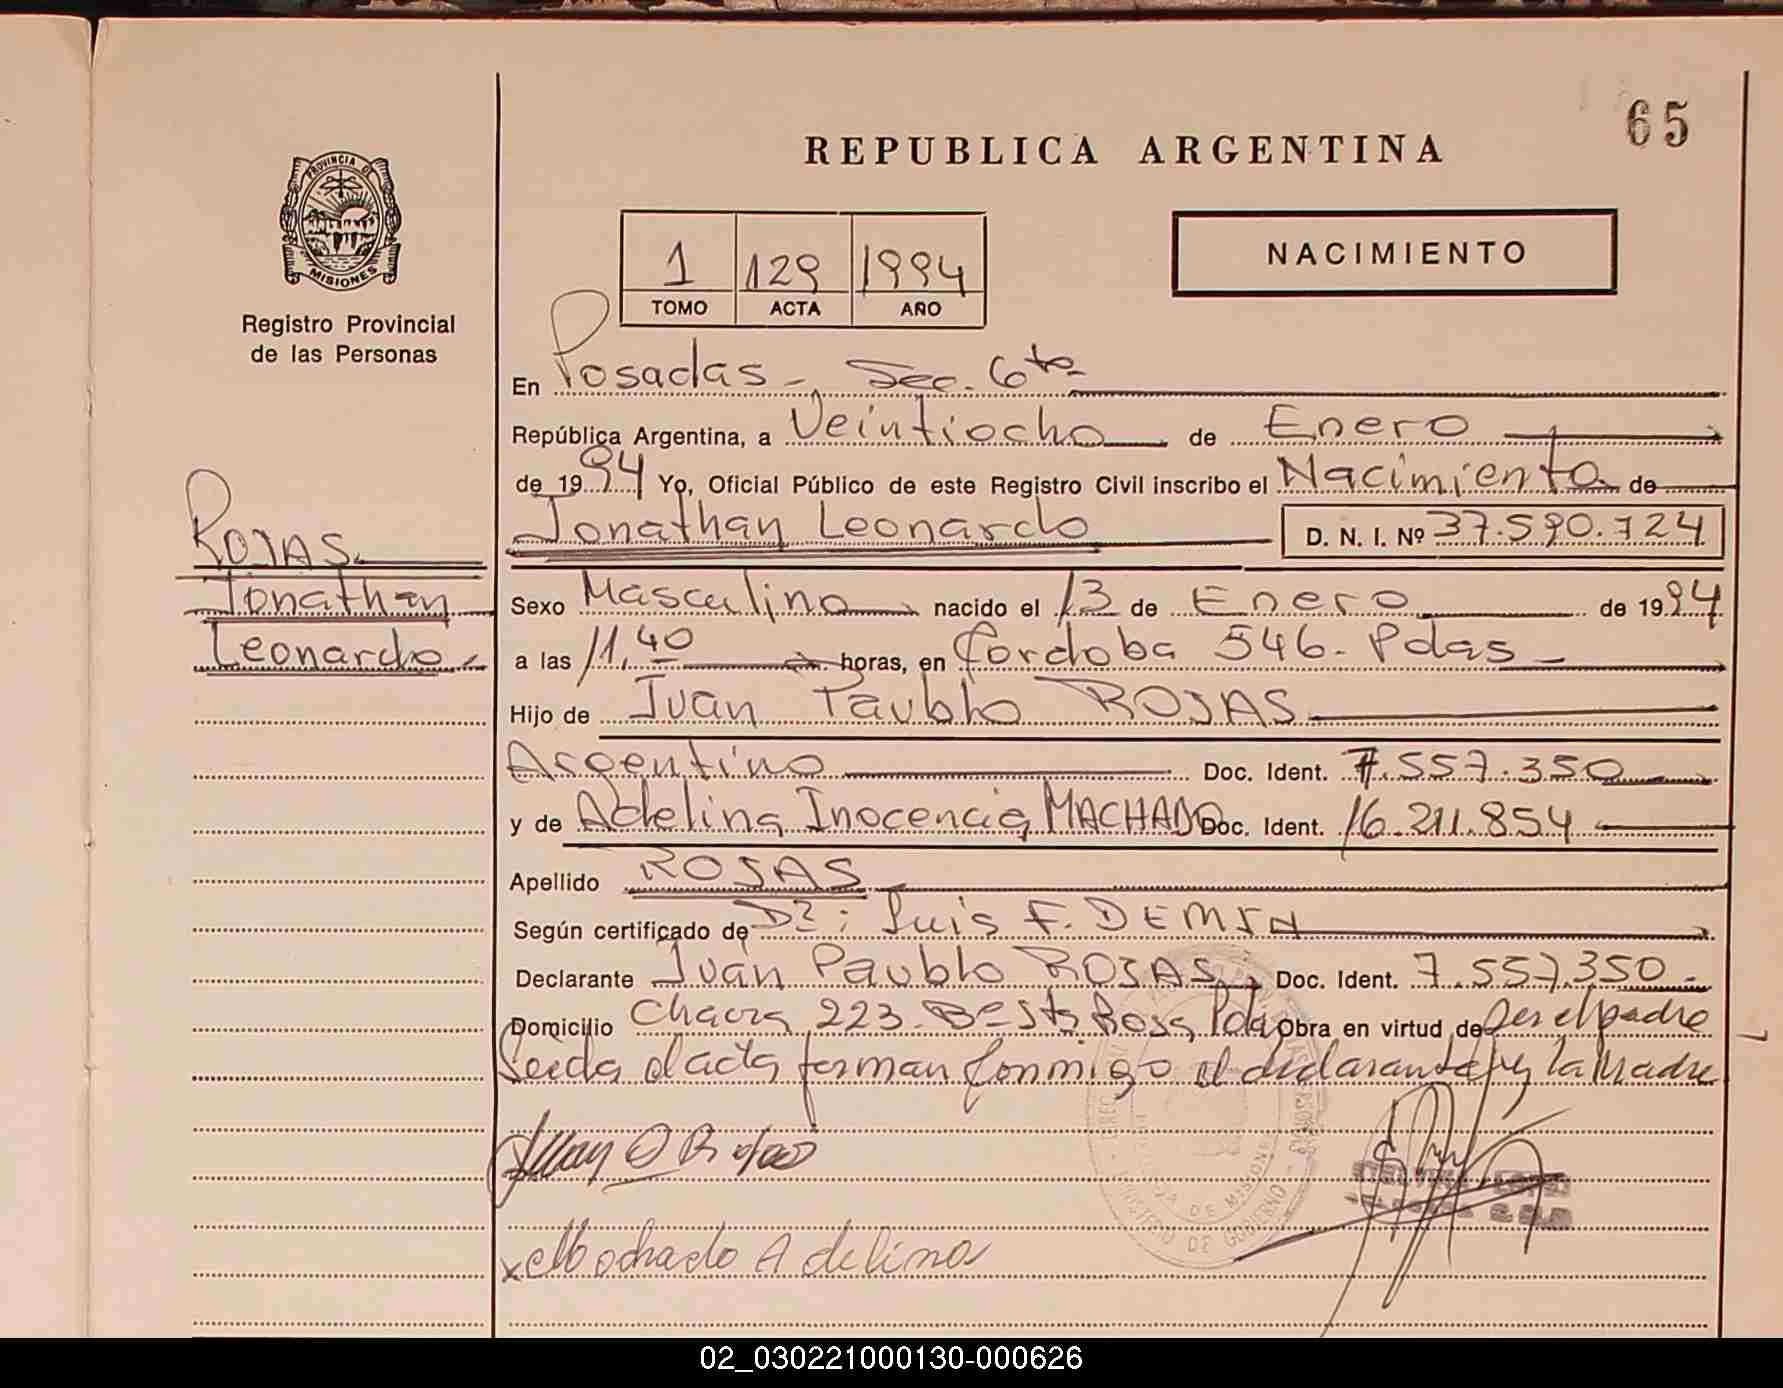 65
REPUBLICA ARGENTINA
PROVINCIA DE
MISIONES
Registro Provincial
de las Personas
1 129 1994
TOMO ACTA AÑO
NACIMIENTO
En Posadas - Sec. 6ta
República Argentina, a Veintiocho de Enero
de 1994 Yo, Oficial Público de este Registro Civil inscribo el Nacimiento de
Jonathan Leonardo D. N. I. Nº 37.590.724
ROJAS
Jonathan
Leonardo
Sexo Masculino nacido el 13 de Enero de 1994
a las 11,40 horas, en Cordoba 546. Pdas
Hijo de Juan Paublo ROJAS
Argentino Doc. Ident. 7.557.350
y de Adelina Inocencia MACHADO Doc. Ident. 16.211.854
Apellido ROJAS
Según certificado de Dr: Luis F. DEMIN
Declarante Juan Paublo ROJAS Doc. Ident. 7.557.350
Domicilio Chacra 223. Bº Sta Rosa, Pdas Obra en virtud de ser el padre
Leida el acta forman conmigo el declarante y la Madre
Juan P Rojas
x Machado Adelina
MINISTERIO DE GOBIERNO
02_030221000130-000626